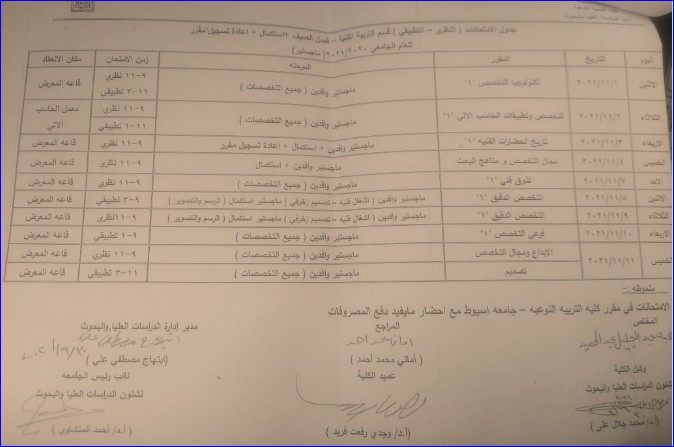 جدول الامتحانات ( النظري – التطبيقي ) قسم التربية الفنية – فصل الصيف +استكمال + اعادة تسجيل مقرر
للعام الجامعى ٢٠٢١/٢٠٢٠ ( ماجستير )
اليوم التاريخ المقرر المرحلة زمن الامتحان مكان الانعقاد
الاثنين ٢٠٢١/١١/١ تكنولوجيا التخصص "١" ماجستير وافدين ( جميع التخصصات ) ٩-١١ نظري ١١-٣ تطبيقي قاعه المعرض
الثلاثاء ٢٠٢١/١١/٢ التخصص وتطبيقات الحاسب الالي "١" ماجستير وافدين ( جميع التخصصات ) ٩-١١ نظري ١١-٢ تطبيقي معمل الحاسب الالي
الاربعاء ٢٠٢١/١١/٣ تاريخ الحضارات الفنيه "١" ماجستير وافدين + استكمال + اعادة تسجيل مقرر ٩-١١ نظري قاعه المعرض
الخميس ٢٠٢١/١١/٤ مجال التخصص و مناهج البحث ماجستير وافدين + استكمال ٩-١١ نظري قاعه المعرض
الاحد ٢٠٢١/١١/٧ تذوق فني "١" ماجستير وافدين ( جميع التخصصات ) ٩-١١ نظري قاعه المعرض
الاثنين ٢٠٢١/١١/٨ التخصص الدقيق "١" ماجستير وافدين ( اشغال فنيه – تصميم زخرفي ) ماجستير استكمال ( الرسم والتصوير ) ٩-٣ تطبيقي قاعه المعرض
الثلاثاء ٢٠٢١/١١/٩ التخصص الدقيق "١" ماجستير وافدين ( اشغال فنيه – تصميم زخرفي ) ماجستير استكمال ( الرسم والتصوير ) ٩-١١ نظري قاعه المعرض
الاربعاء ٢٠٢١/١١/١٠ فرعي التخصص "١" ماجستير وافدين ( جميع التخصصات ) ٩-١ تطبيقي قاعه المعرض
الخميس ٢٠٢١/١١/١١ الابداع ومجال التخصص ماجستير وافدين ( جميع التخصصات ) ٩-١١ نظري قاعه المعرض
تصميم ماجستير وافدين ( جميع التخصصات ) ١١-٣ تطبيقي قاعه المعرض
ملحوظه :-
الامتحانات في مقرر كليه التربيه النوعيه – جامعه اسيوط مع احضار مايفيد دفع المصروفات
المختص المراجع مدير إدارة الدراسات العليا والبحوث
( أماني محمد أحمد ) ( ابتهاج مصطفي علي )
وكيل الكلية عميد الكلية نائب رئيس الجامعه
لشئون الدراسات العليا والبحوث لشئون الدراسات العليا والبحوث
( أ.د/ محمد جلال على ) ( أ.د/ وجدي رفعت فريد ) ( أ.د/ أحمد المنشاوي )